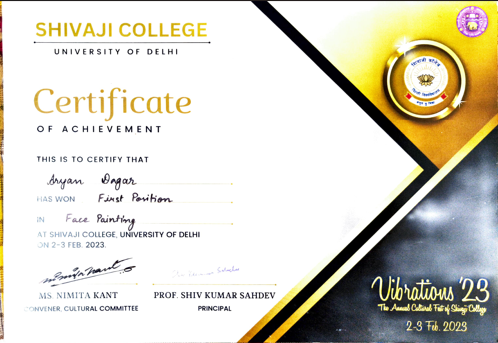 SHIVAJI COLLEGE
UNIVERSITY OF DELHI
Certificate
OF ACHIEVEMENT
THIS IS TO CERTIFY THAT
Aryan Dagar
HAS WON First Position
IN Face Painting
AT SHIVAJI COLLEGE, UNIVERSITY OF DELHI
ON 2-3 FEB. 2023.
MS. NIMITA KANT
CONVENER, CULTURAL COMMITTEE
PROF. SHIV KUMAR SAHDEV
PRINCIPAL
Vibrations '23
The Annual Cultural Fest of Shivaji College
2-3 Feb. 2023